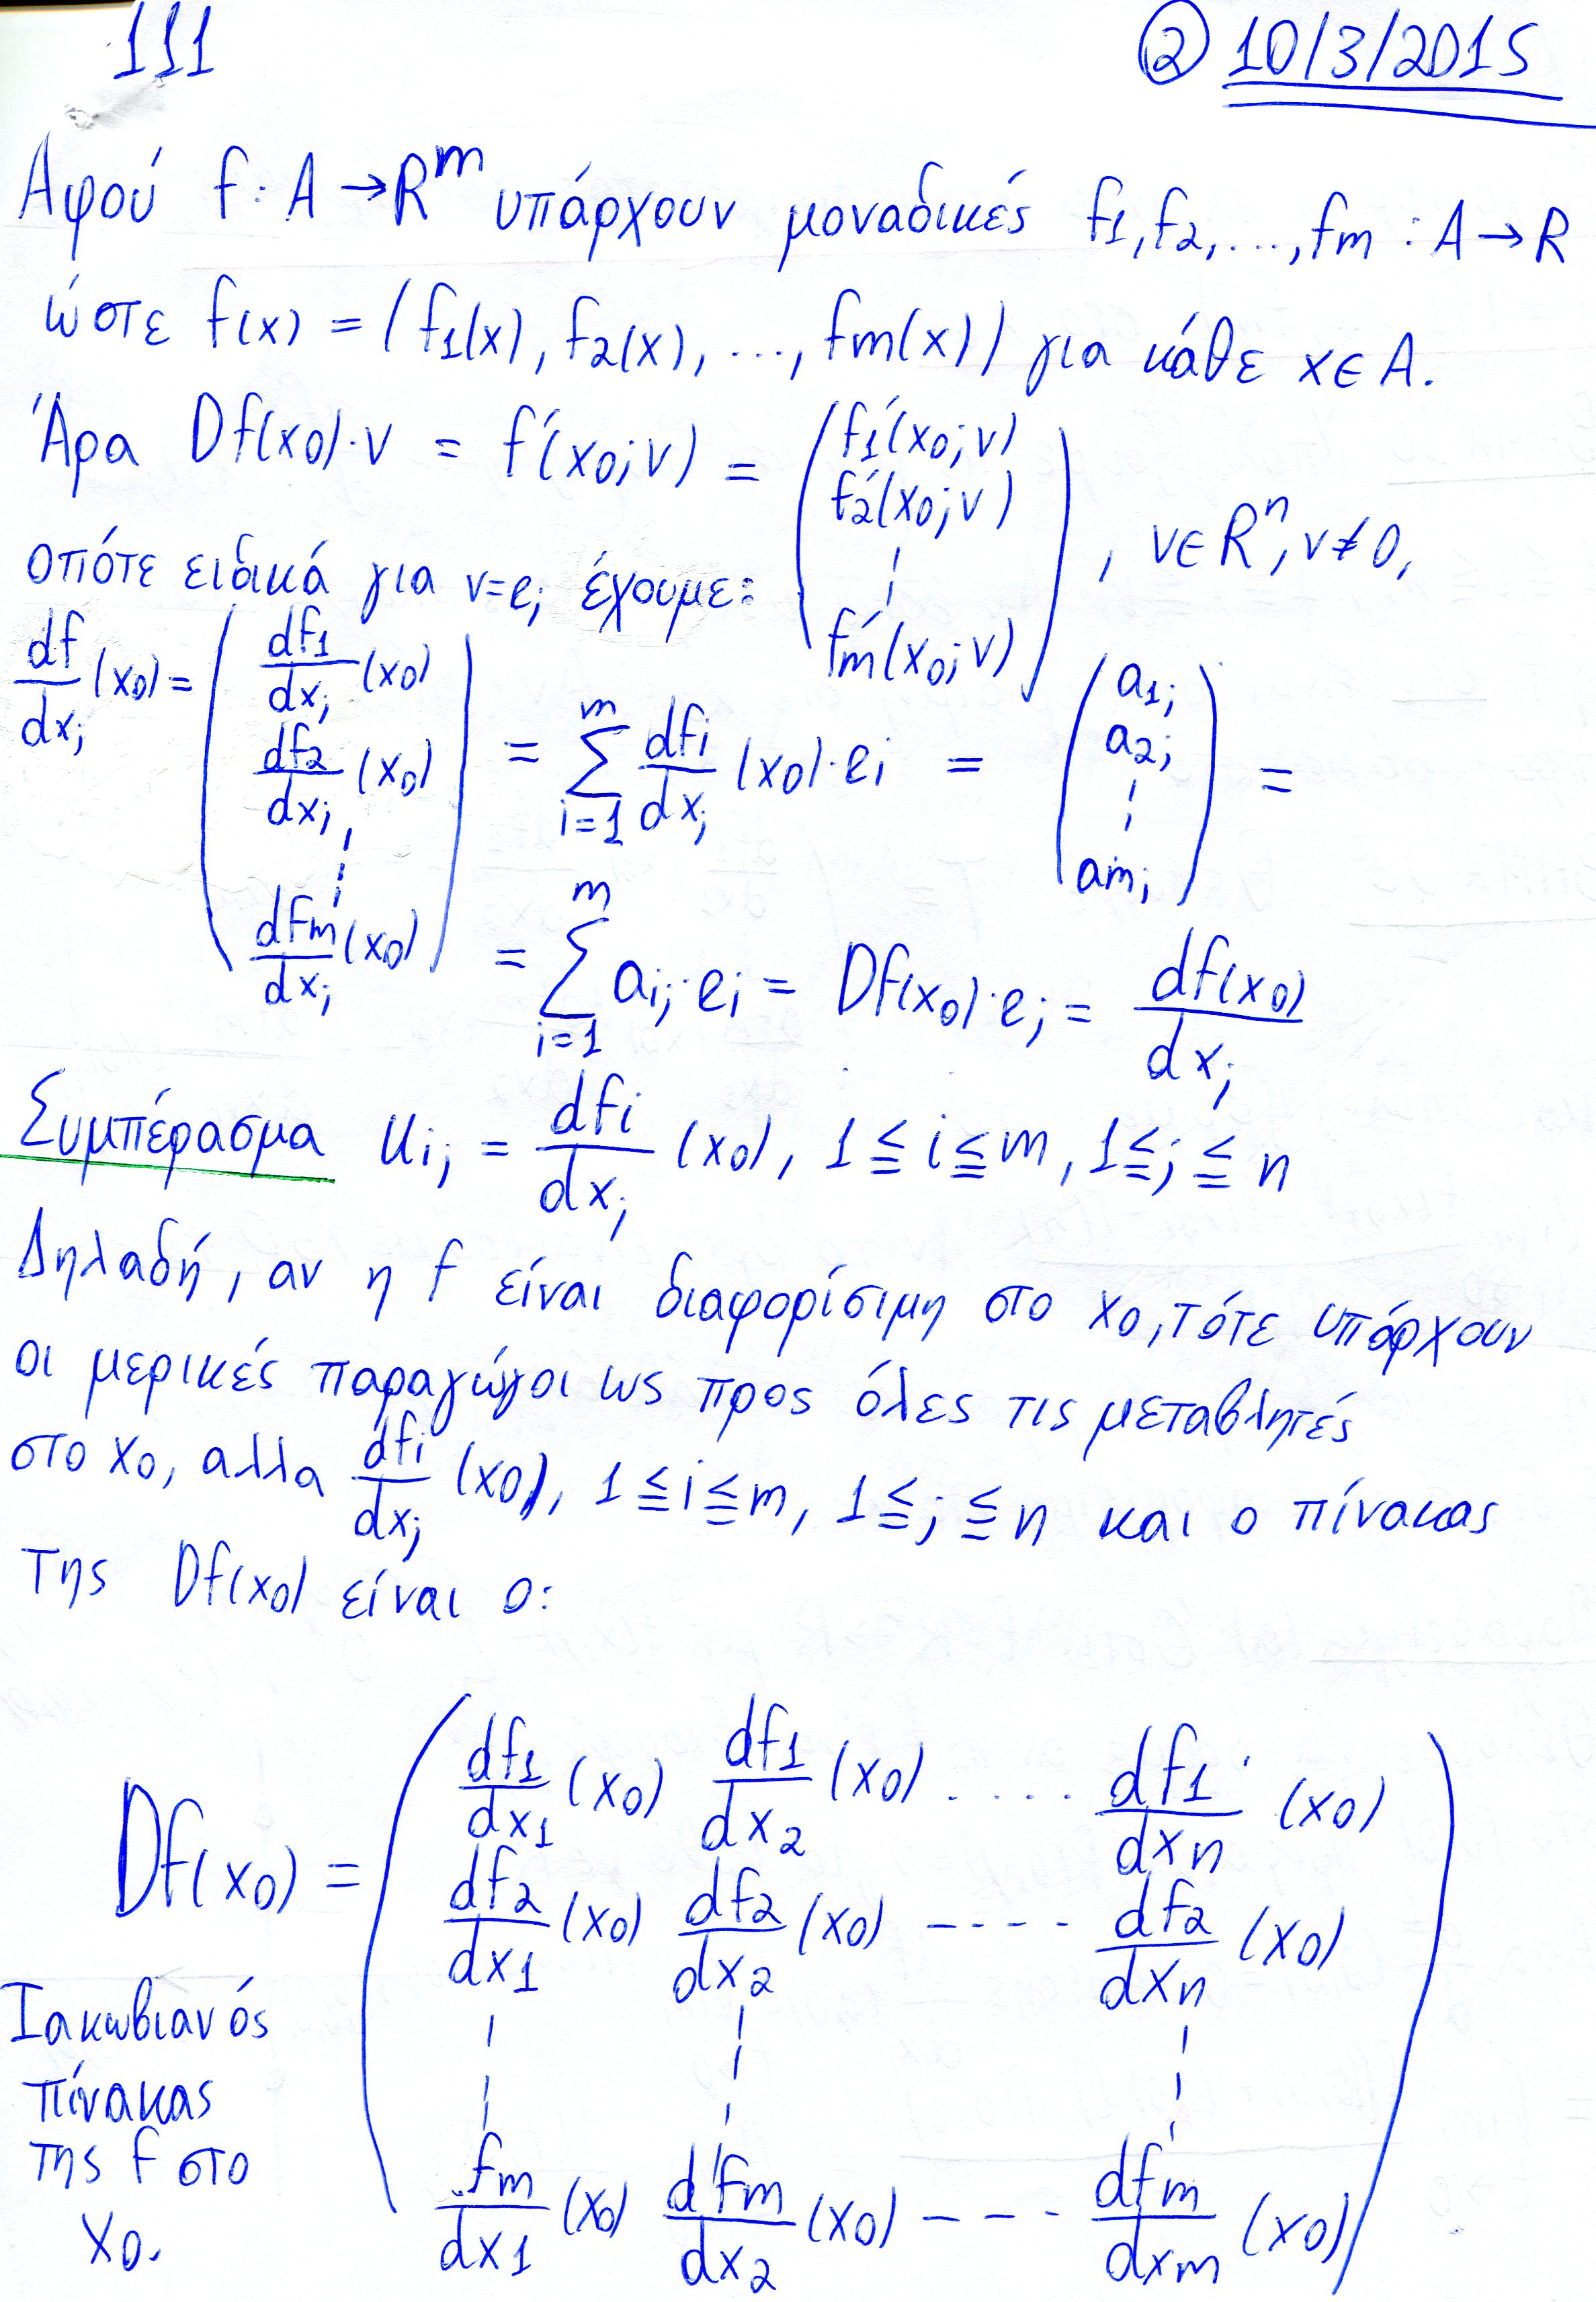 111 ② 10/3/2015
Αφού f: A → R^m υπάρχουν μοναδικές f1, f2, ..., fm : A → R
ώστε f(x) = (f1(x), f2(x), ..., fm(x)) για κάθε x ∈ A.
Άρα Df(x0)·v = f'(x0; v) = ( f1'(x0; v) f2'(x0; v) ⋮ fm'(x0; v) ) , v ∈ R^n, v ≠ 0,
οπότε ειδικά για v=ej έχουμε:
df/dxj (x0) = ( df1/dxj (x0) df2/dxj (x0) ⋮ dfm/dxj (x0) ) = Σ_{i=1}^{m} dfi/dxj (x0)·ei = ( a1j a2j ⋮ amj ) =
= Σ_{i=1}^{m} aij·ei = Df(x0)·ej = df(x0)/dxj
Συμπέρασμα αij = dfi/dxj (x0), 1 ≦ i ≦ m, 1 ≦ j ≦ n
Δηλαδή, αν η f είναι διαφορίσιμη στο x0, τότε υπάρχουν
οι μερικές παραγώγοι ως προς όλες τις μεταβλητές
στο x0, αλλα dfi/dxj (x0), 1 ≦ i ≦ m, 1 ≦ j ≦ n και ο πίνακας
της Df(x0) είναι ο:
Df(x0) = ( df1/dx1 (x0) df1/dx2 (x0) .... df1/dxn (x0)
df2/dx1 (x0) df2/dx2 (x0) ---- df2/dxn (x0)
⋮ ⋮ ⋮
fm/dx1 (x0) dfm/dx2 (x0) --- dfm/dxm (x0) )
Ιακωβιανός
πίνακας
της f στο
x0.